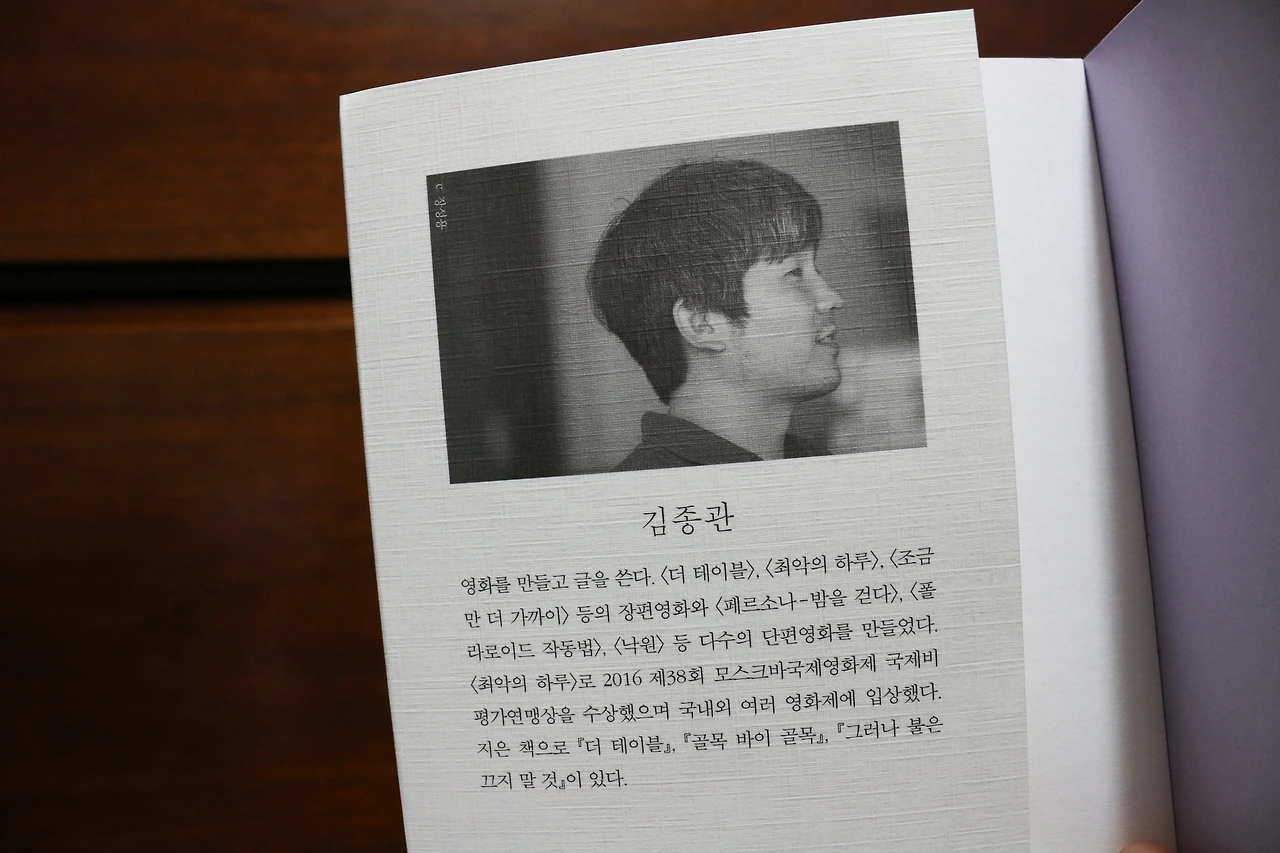 ⓒ 장성용
김종관
영화를 만들고 글을 쓴다. 〈더 테이블〉, 〈최악의 하루〉, 〈조금
만 더 가까이〉 등의 장편영화와 〈페르소나-밤을 걷다〉, 〈폴
라로이드 작동법〉, 〈낙원〉 등 다수의 단편영화를 만들었다.
〈최악의 하루〉로 2016 제38회 모스크바국제영화제 국제비
평가연맹상을 수상했으며 국내외 여러 영화제에 입상했다.
지은 책으로 『더 테이블』, 『골목 바이 골목』, 『그러나 불은
끄지 말 것』이 있다.